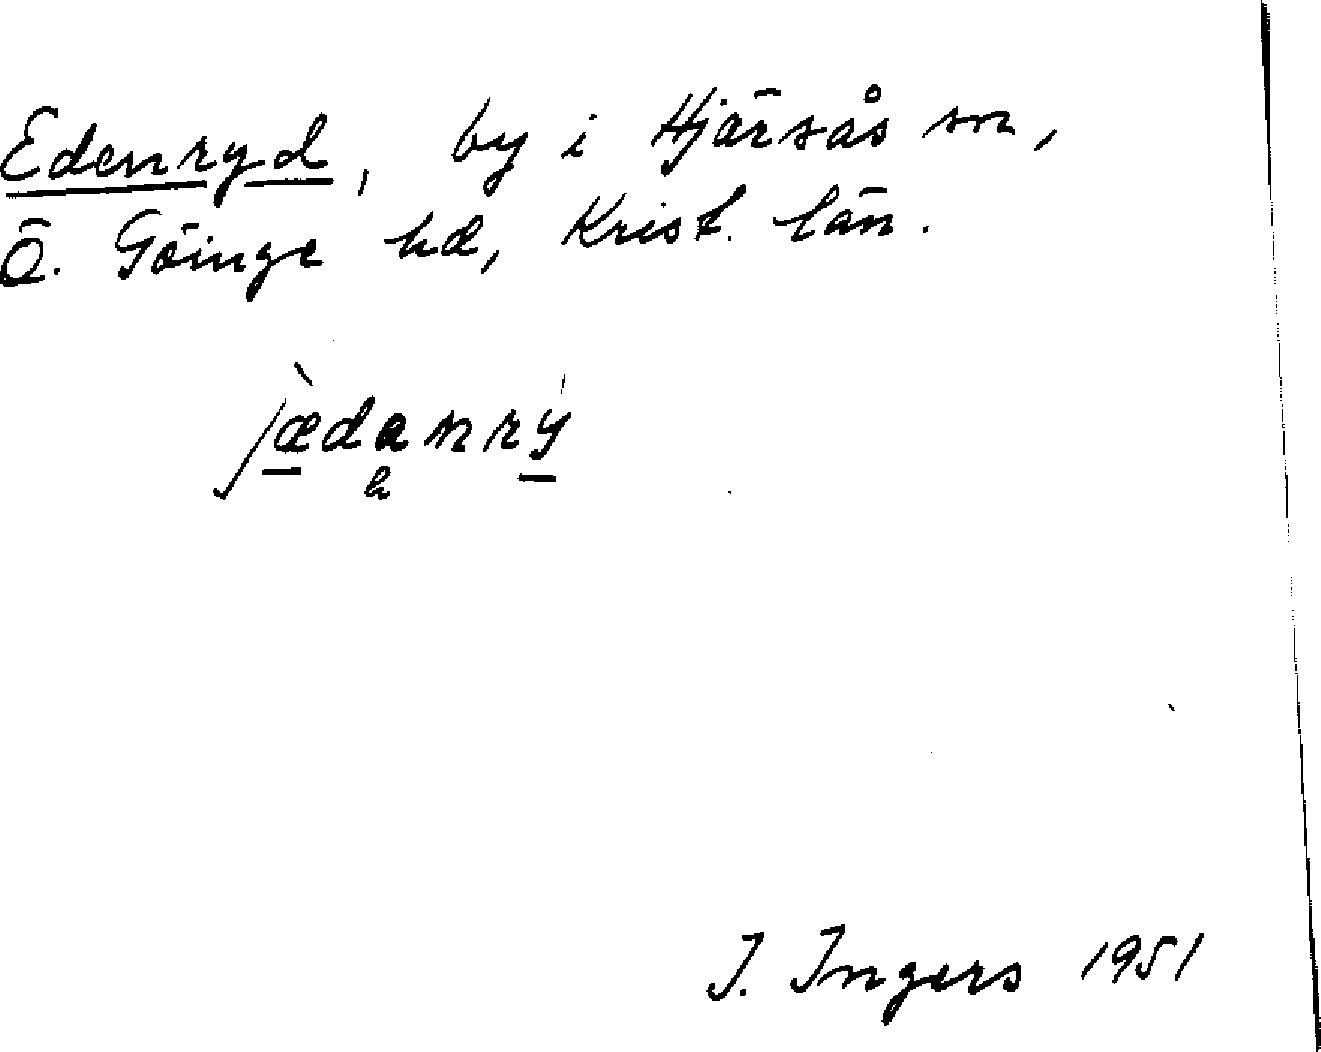 Edenryd, by i Hjärsås sn,
Ö. Göinge hd, Krist. län.
jæ̀danrý
I. Ingers 1951